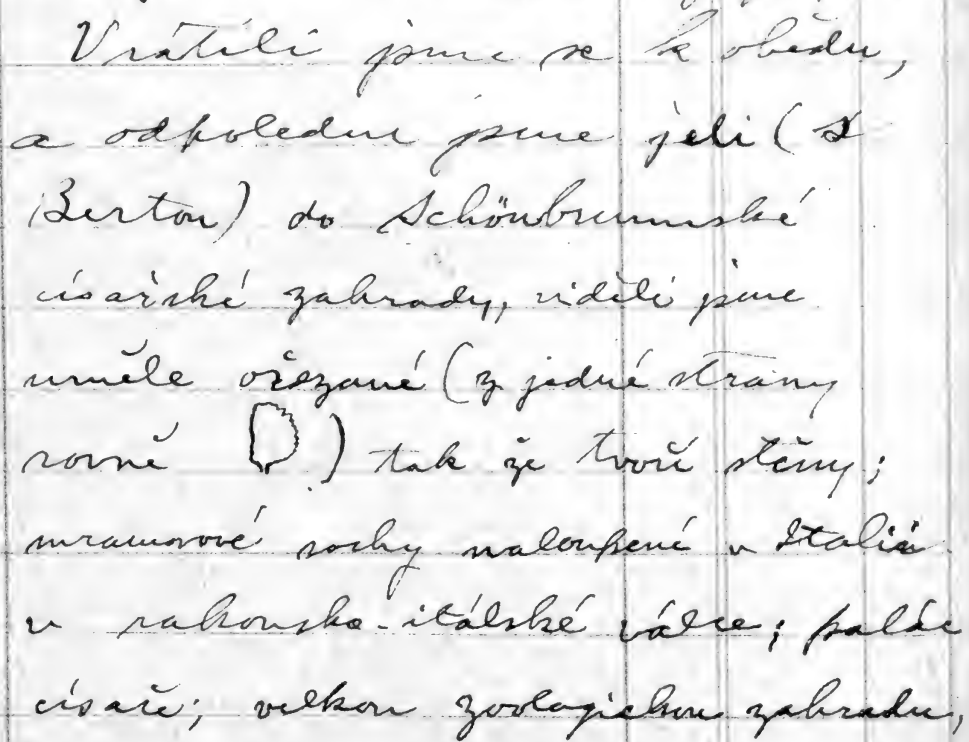 Vrátili jsme se k obědu,
a odpoledne jsme jeli (s
Bertou) do Schönbrunnské
císařské zahrady, viděli jsme
uměle ořezané (z jedné strany
rovně ) tak že tvoří stěny;
mramorové sochy naloupené v Italii
v rakousko-itálské válce; palác
císaře; velkou zoologickou zahradu,